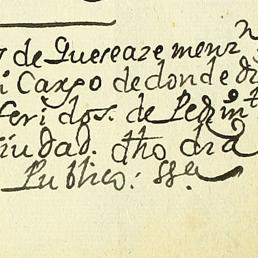 de Quereaze menz n
i Cargo de donde di
feridos. de Pedim.to
iudad. dho dia
Publico: sse.